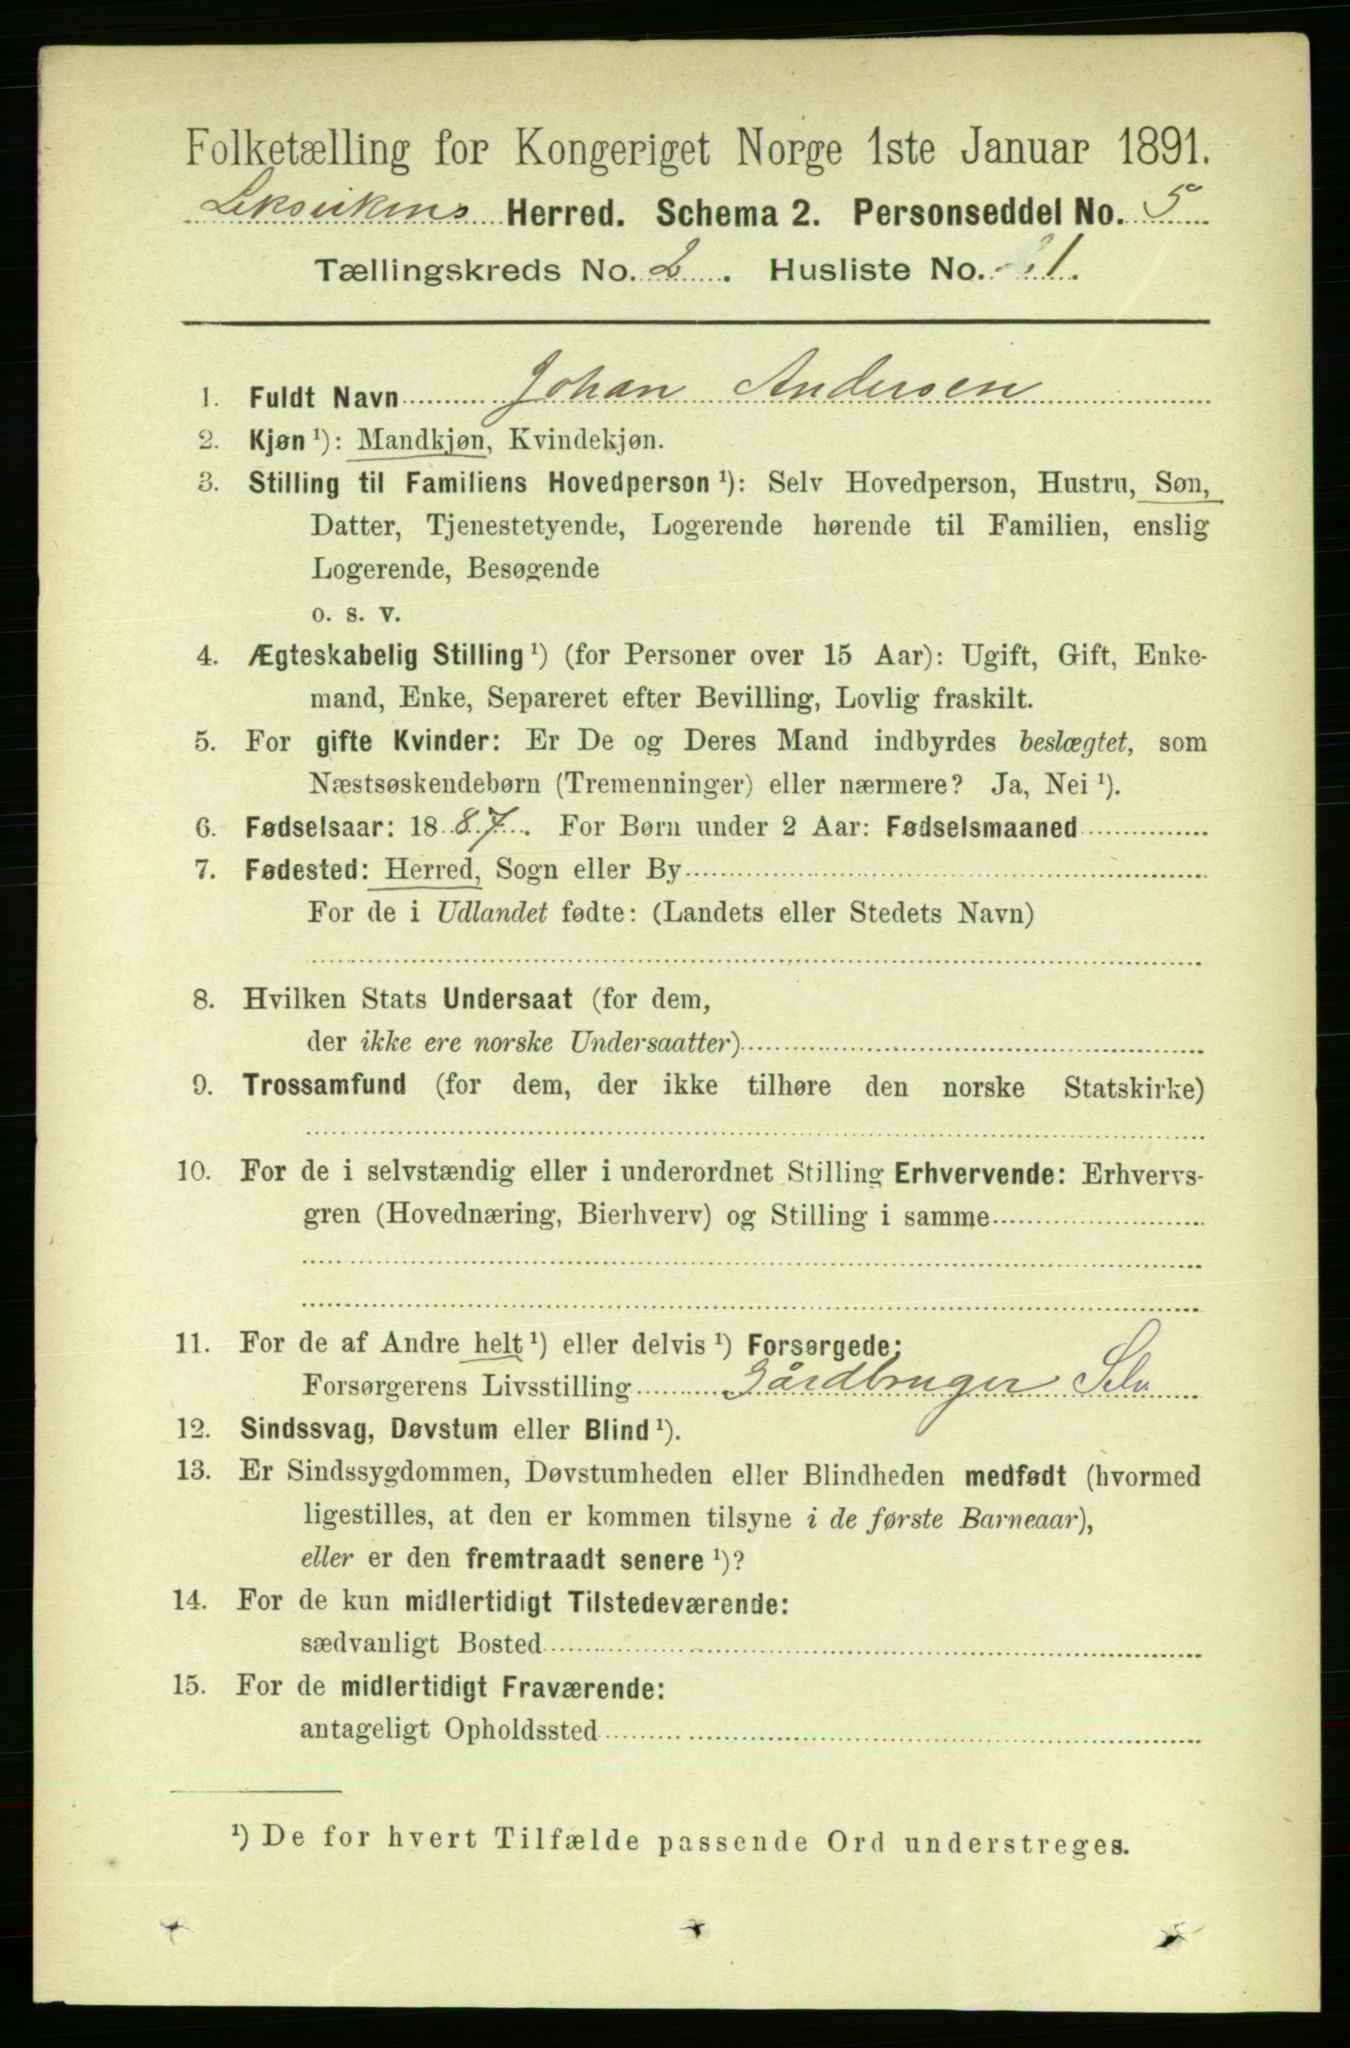 Folketælling for Kongeriget Norge 1ste Januar 1891.
Leksvikens Herred. Schema 2. Personseddel No. 5
Tællingskreds No. 2. Husliste No. 1.
1. Fuldt Navn Johan Andersen
2. Kjøn ¹): Mandkjøn, Kvindekjøn.
3. Stilling til Familiens Hovedperson ¹): Selv Hovedperson, Hustru, Søn,
Datter, Tjenestetyende, Logerende hørende til Familien, enslig
Logerende, Besøgende
o. s. v.
4. Ægteskabelig Stilling ¹) (for Personer over 15 Aar): Ugift, Gift, Enke-
mand, Enke, Separeret efter Bevilling, Lovlig fraskilt.
5. For gifte Kvinder: Er De og Deres Mand indbyrdes beslægtet, som
Næstsøskendebørn (Tremenninger) eller nærmere? Ja, Nei ¹).
6. Fødselsaar: 1887. For Børn under 2 Aar: Fødselsmaaned
7. Fødested: Herred, Sogn eller By
For de i Udlandet fødte: (Landets eller Stedets Navn)
8. Hvilken Stats Undersaat (for dem,
der ikke ere norske Undersaatter)
9. Trossamfund (for dem, der ikke tilhøre den norske Statskirke)
10. For de i selvstændig eller i underordnet Stilling Erhvervende: Erhvervs-
gren (Hovednæring, Bierhverv) og Stilling i samme
11. For de af Andre helt ¹) eller delvis ¹) Forsørgede:
Forsørgerens Livsstilling Gårdbruger Selv
12. Sindssvag, Døvstum eller Blind ¹).
13. Er Sindssygdommen, Døvstumheden eller Blindheden medfødt (hvormed
ligestilles, at den er kommen tilsyne i de første Barneaar),
eller er den fremtraadt senere ¹)?
14. For de kun midlertidigt Tilstedeværende:
sædvanligt Bosted
15. For de midlertidigt Fraværende:
antageligt Opholdssted
¹) De for hvert Tilfælde passende Ord understreges.